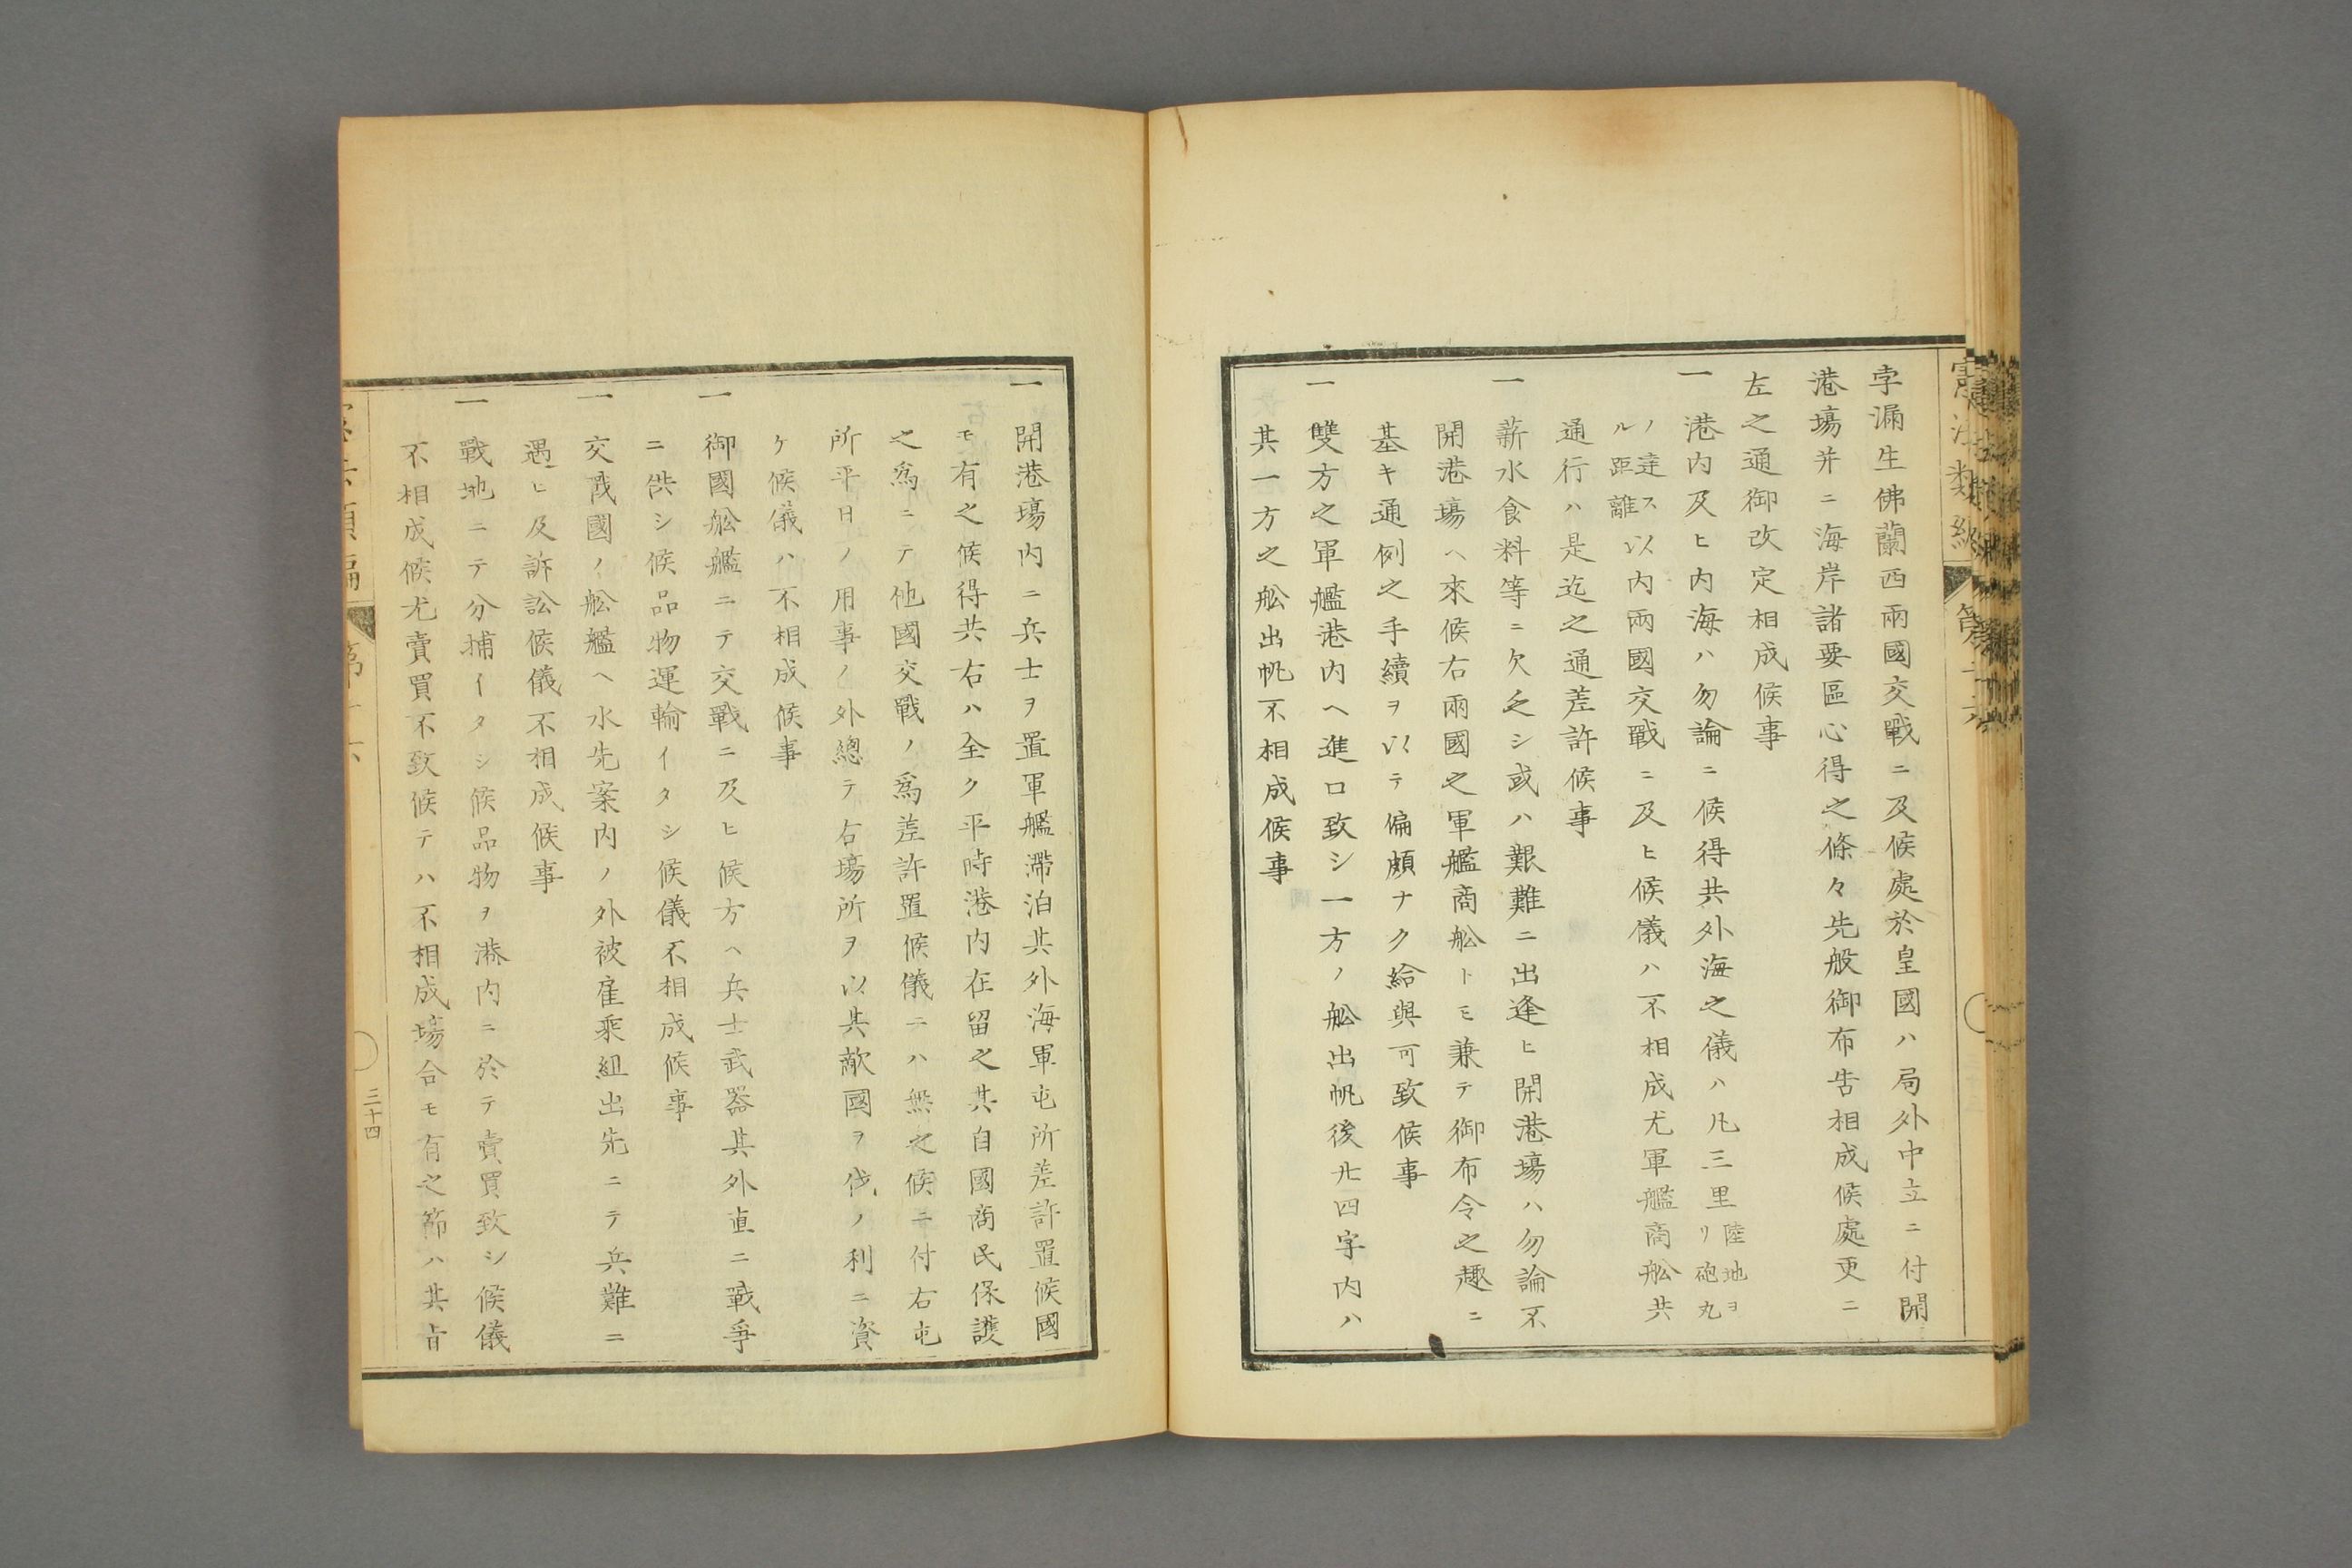 孛漏生佛蘭西兩國交戰ニ及候處於皇國ハ局外中立ニ付開
港塲并ニ海岸諸要區心得之條々先般御布告相成候處更ニ
左之通御改定相成候事
一港内及ヒ内海ハ勿論ニ候得共外海之儀ハ凡三里陸地ヨリ砲丸
ノ達スル距離以内兩國交戰ニ及ヒ候儀ハ不相成尤軍艦商舩共
通行ハ是迄之通差許候事
一薪水食料等ニ欠乏シ或ハ艱難ニ出逢ヒ開港塲ハ勿論不
開港塲ヘ來候右兩國之軍艦商舩トモ兼テ御布令之趣ニ
基キ通例之手續ヲ以テ偏頗ナク給與可致候事
一雙方之軍艦港内ヘ進口致シ一方ノ舩出帆後廿四字内ハ
其一方之舩出帆不相成候事
一開港塲内ニ兵士ヲ置軍艦滯泊其外海軍屯所差許置候國
モ有之候得共右ハ全ク平時港内在留之其自國商民保護
之爲ニテ他國交戰ノ爲差許置候儀ニハ無之候ニ付右屯
所平日ノ用事ノ外總テ右塲所ヲ以其敵國ヲ伐ノ利ニ資
ケ候儀ハ不相成候事
一御國舩艦ニテ交戰ニ及ヒ候方ヘ兵士武器其外直ニ戰爭
ニ供シ候品物運輸イタシ候儀不相成候事
一交戰國ノ舩艦ヘ水先案内ノ外被雇乘組出先ニテ兵難ニ
遇ヒ及訴訟候儀不相成候事
一戰地ニテ分捕イタシ候品物ヲ港内ニ於テ賣買致シ候儀
不相成候尤賣買不致候テハ不相成塲合モ有之節ハ其旨
三十四